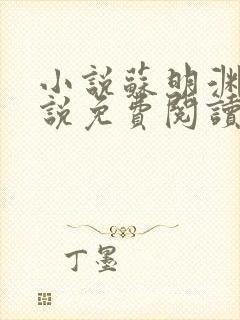 小說蘇明淵
說免費閱讀
丁墨